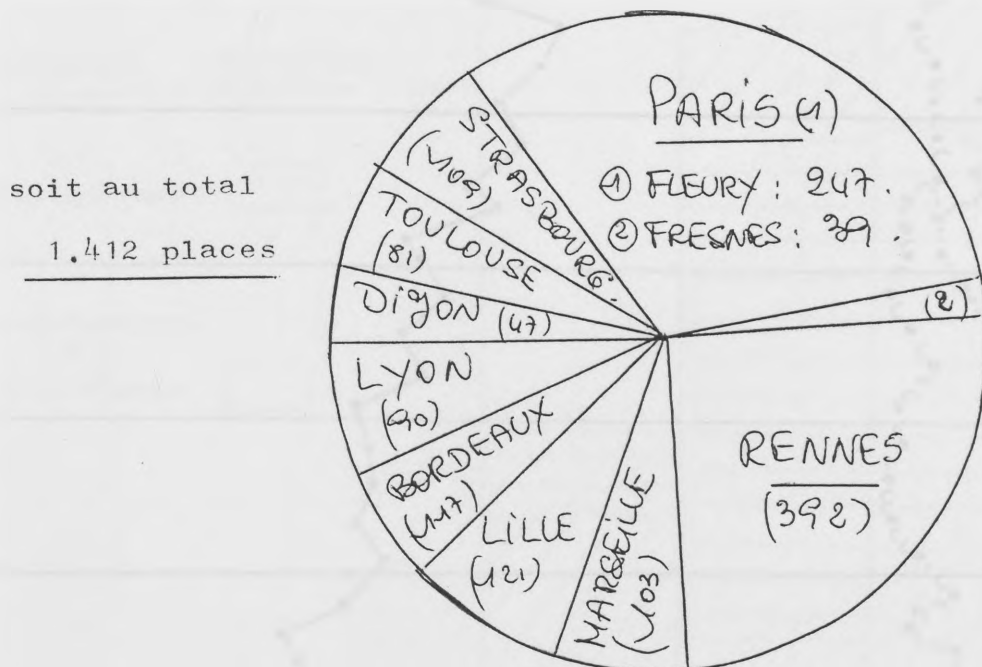 soit au total
1.412 places
PARIS (1)
① FLEURY : 247.
② FRESNES : 39.
(2)
RENNES
(392)
MARSEILLE
(103)
LILLE
(121)
BORDEAUX
(117)
LYON
(90)
DIJON (47)
TOULOUSE
(81)
STRASBOURG.
(109)